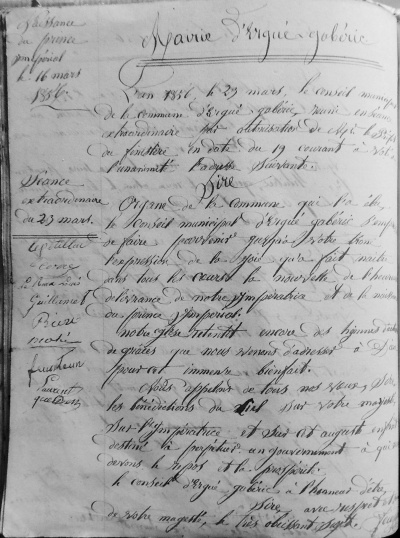 Naissance
du prince
impérial
le 16 mars
1856
Mairie d'Ergué-gabéric
L'an 1856, le 23 mars, le conseil municipal
de la commune d'Ergué gabéric réuni en séance
extraordinaire
du finistère en date du 19 courant a voté
l'unanimité l'adresse suivante.
Séance
extraordinaire
du 23 mars.
Sire
Organe de la commune qui l'a élu
le Conseil municipal d'Ergué gabéric s'empresse
de faire parvenir jusqu'à votre trône
l'expression de la joie qu'a fait naître
dans tous les coeurs la nouvelle de l'heureuse
délivrance de notre Impératrice et de la naissance
du prince Impérial.
notre église retentit encore des hymnes d'actions
de grâces que nous venons d'adresser à Dieu
pour cet immense bienfait.
Nous appelons de tous nos voeux, Sire
les bénédictions du Ciel sur votre majesté
sur l'Impératrice et sur cet auguste enfant
destiné à perpétuer un gouvernement à qui nous
devons le repos et la prospérité.
le conseil d'Ergué gabéric à l'honneur d'être
Sire, avec respect
de votre majesté, le très obéissant sujet